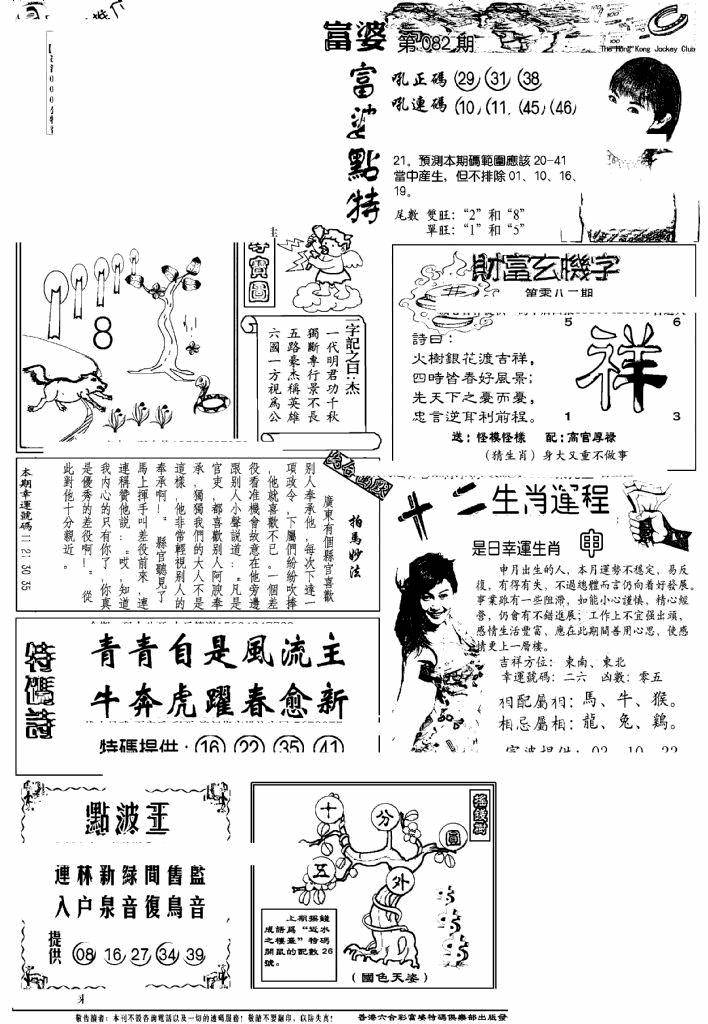 富婆 第082期
The Hong Kong Jockey Club
富婆點特
吼正碼 29 31 38
吼連碼 10 11 45 46
21。預測本期碼範圍應該20-41
當中産生，但不排除01、10、16、
19。
尾數 雙旺：“2”和“8”
單旺：“1”和“5”
尋寶圖
8
一字記之曰：杰
一代明君功千秋
獨斷專行景不長
五路豪杰稱英雄
六國一方視爲公
財富玄機字
第零八二期
5 6
詩曰：
火樹銀花渡吉祥，
四時皆春好風景；
先天下之憂而憂，
忠言逆耳利前程。
祥
1 3
送：怪模怪樣 配：高官厚祿
（猜生肖）身大又重不做事
拍馬妙法
廣東有個縣官喜歡
別人奉承他，每次下達一
項政令，下屬們紛紛吹捧
，他就喜歡不已。一個差
役看准機會故意在他旁邊
跟別人小聲説道：“凡是
官吏，都喜歡別人阿腴奉
承，獨獨我們的大人不是
這樣，他非常輕視別人的
奉承啊！”縣官聽見了
馬上揮手叫差役前來，連
連稱贊他説：“哎，知道
我内心的只有你了，你真
是優秀的差役啊！”從
此對他十分親近。
本期幸運號碼：11 21 30 35
十二生肖運程
是日幸運生肖 申
申月出生的人，本月運勢不穩定，易反
復，有得有失，不過總體而言仍向着好發展。
事業雖有一些阻滯，如能小心謹慎，精心經
營，仍會有不錯進展；工作上不宜强出頭，
感情生活豐富，應在此期間善用心思，使感
情更上一層樓。
吉祥方位：東南、東北
幸運號碼：二六 凶數：零五
相配屬相：馬、牛、猴。
相忌屬相：龍、兔、鷄。
特碼詩
青青自是風流主
牛奔虎躍春愈新
特碼提供：16 22 35 41
點波王
連林新緑間舊監
入户泉音復鳥音
提供 08 16 27 34 39
搖錢樹
十 分 圓 五 外
上期搖錢
成語爲“近水
之樓臺”特碼
開鼠的配數26
號。
（國色天姿）
敬告讀者：本刊不設咨詢電話以及一切的連碼服務！敬請不要翻印，以防失真！ 香港六合彩富婆特碼俱樂部出版發